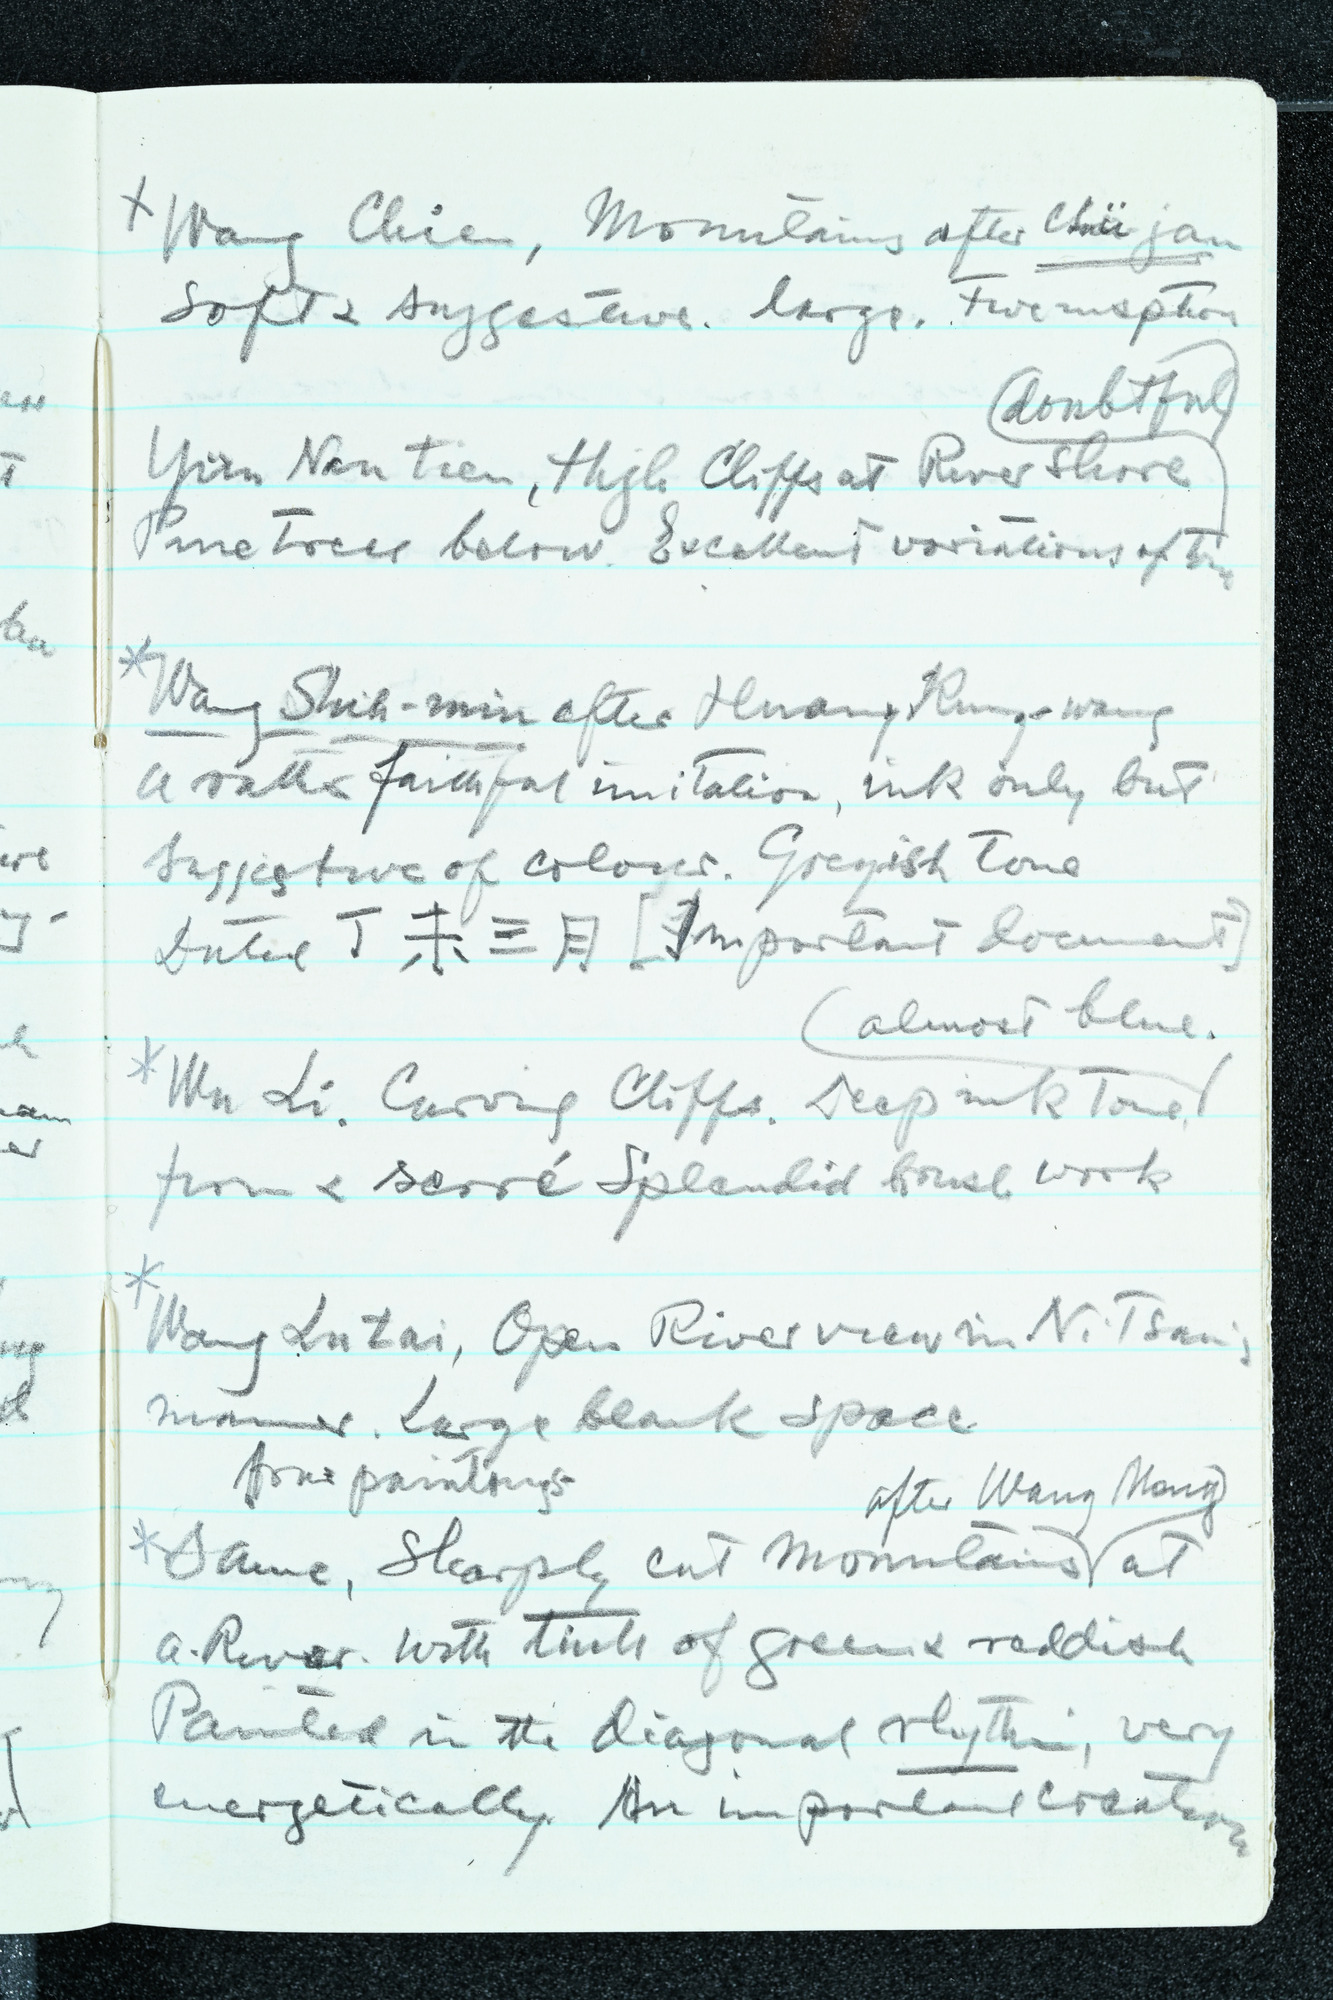 + Wang Chien, Mountains after Chü jan
Soft & suggestive. large.
(doubtful)
Yün Nan tien, High Cliffs at River Shore
Pine trees below. Excellent variations of
* Wang Shih-min after Huang Kung-wang
a rather faithful imitation, ink only but
suggestive of colour. Greyish tone
Dated 丁未三月 [Important document]
(almost blue.
* Wu Li. Curving Cliffs. Deep ink tone
firm & serré Splendid brush work
* Wang Lu tai, Open River view in Ni Tsan's
manner. Large blank space
paintings
after Wang Meng
* Same, Sharply cut mountains at
a River. With tints of green & reddish
Painted in the diagonal rhythm, very
energetically. An important creation